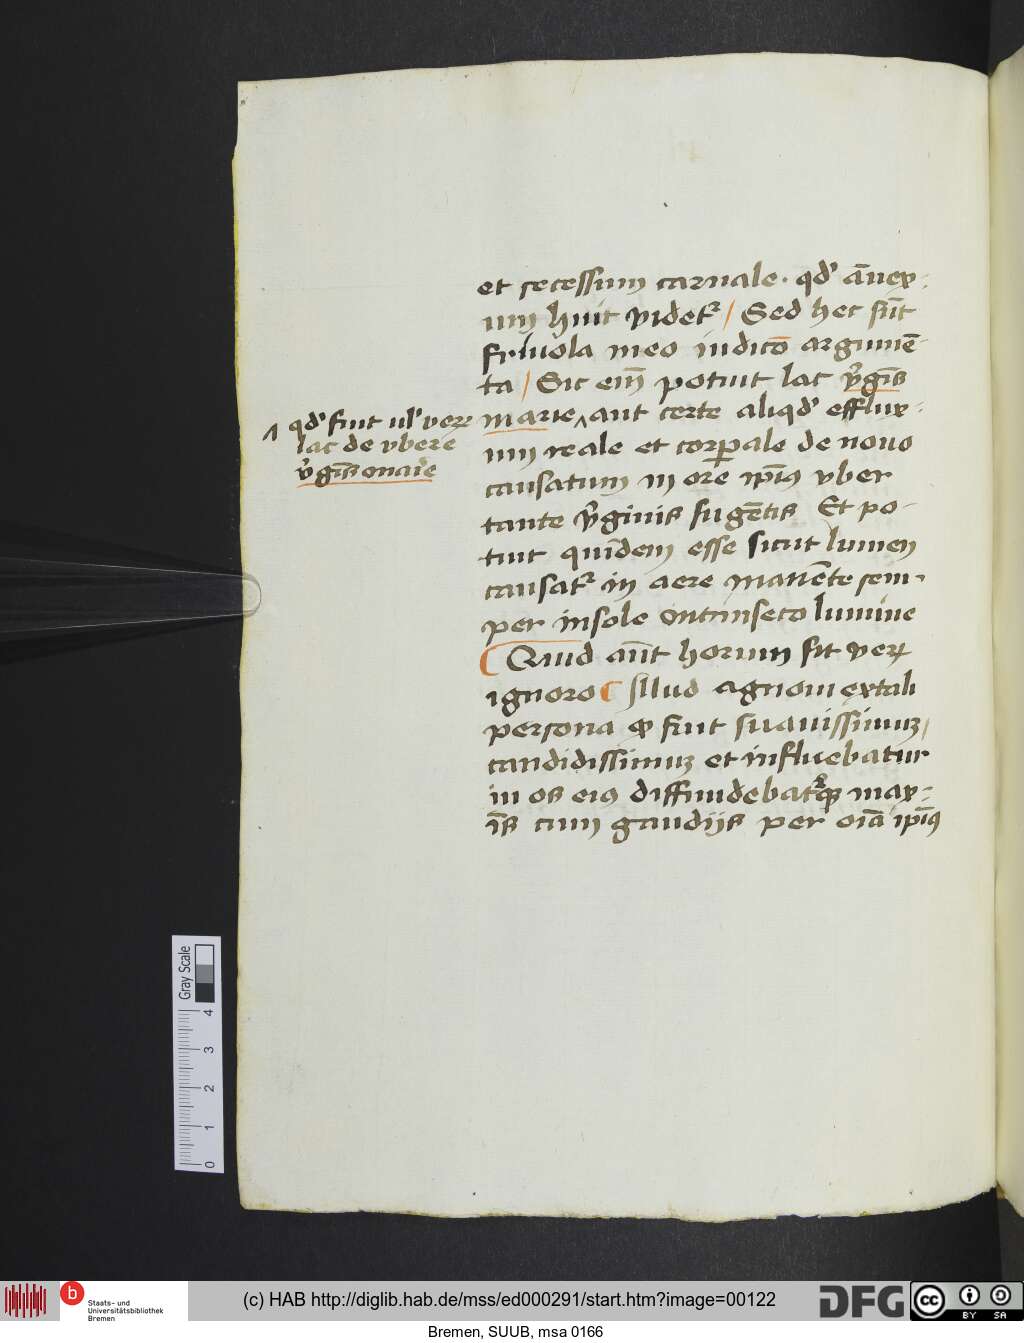 et recessum carnale. qd' ānex-
um huic videtr / Sed hec sūt
friuola meo iudicō argumē-
ta / Sic em̄ potuit lac v̓gīs
marie ʌ aut certe aliqd' efflux-
um reale et corꝑale de nouo
causatum in ore ip̄ius vber
tante v̓ginis sugētis Et po-
tuit quidem esse sicut lumen
causatr in aere manēte sem-
per in sole intrinseco lumine
Quid aūt horum sit verꝝ
ignoro Illud agnoui ex tali
persona ꝙ fuit suauissimuꝫ /
candidissimuꝫ et influebatur
in os eius diffundebatrqꝫ max-
īs cum gaudijs per oīa ip̄ius
ʌ qd' fuit ul' vere
lac de vbere
v̓gīs marie
Gray Scale
0 1 2 3 4
b Staats- und
Universitätsbibliothek
Bremen
(c) HAB http://diglib.hab.de/mss/ed000291/start.htm?image=00122
DFG
cc BY SA
Bremen, SUUB, msa 0166